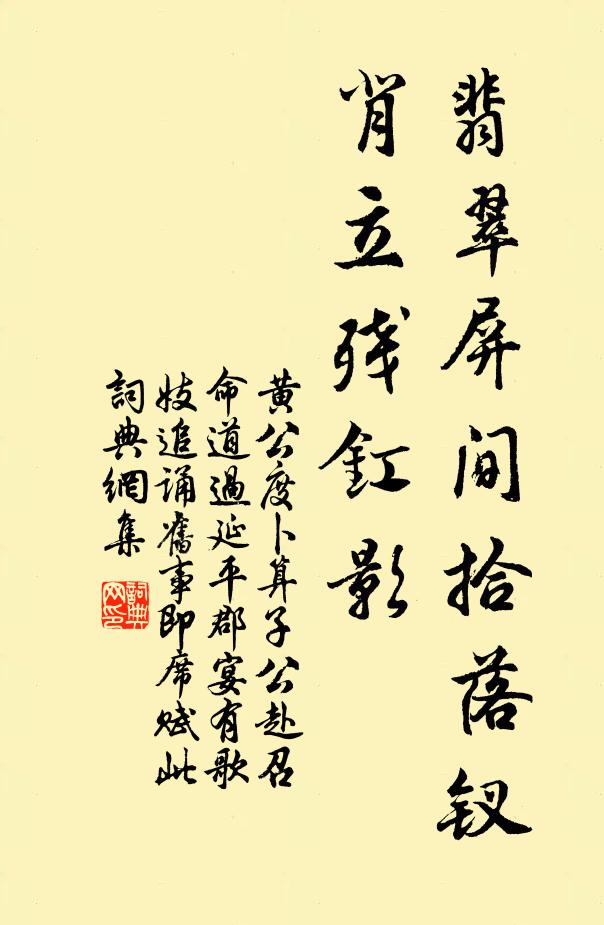 翡翠屏間拾落釵
背立残釭影
黄公度卜算子公赴召
命道過延平郡宴有歌
妓追诵舊事即席赋此
詞典網集
詞典
网印